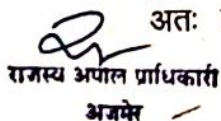 अतः
राजस्व अपील प्राधिकारी
अजमेर